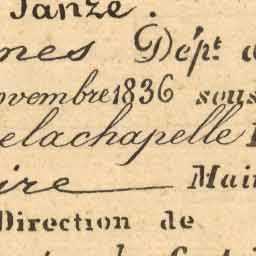 Janzé.
nes Dépt. d
ovembre 1836 sous
elachapelle
ire Mai
Direction de